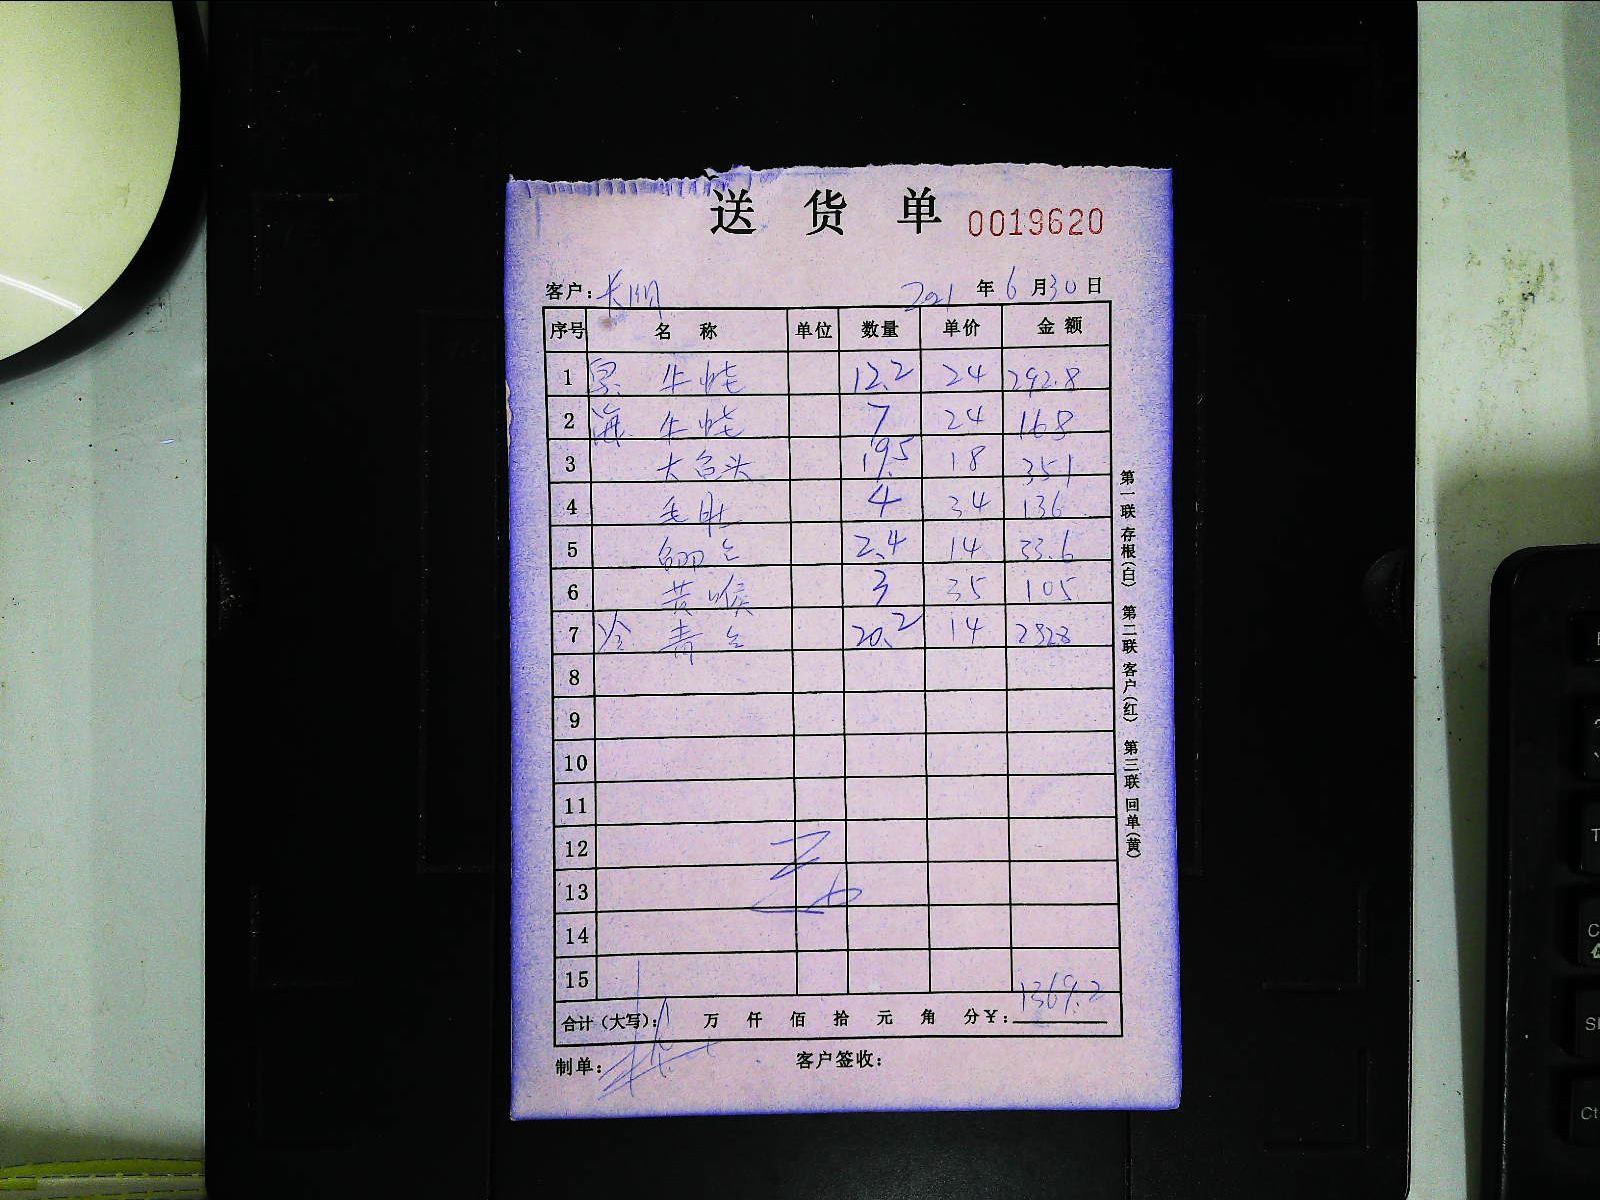 送货单 0019620
客户: 长阴 2021 年 6 月 30 日
序号 名称 单位 数量 单价 金额
1 黑 牛蛙 12.2 24 292.8
2 海 牛蛙 7 24 168
3 大包头 19.5 18 351
4 毛肚 4 34 136
5 2.4 14 33.6
6 黄喉 3 35 105
7 冷 青 20.2 14 282.8
8
9
10
11
12
13
14
15
合计(大写): 万 仟 佰 拾 元 角 分 ¥: 1369.2
制单: 客户签收:
第一联 存根(白) 第二联 客户(红) 第三联 回单(黄)